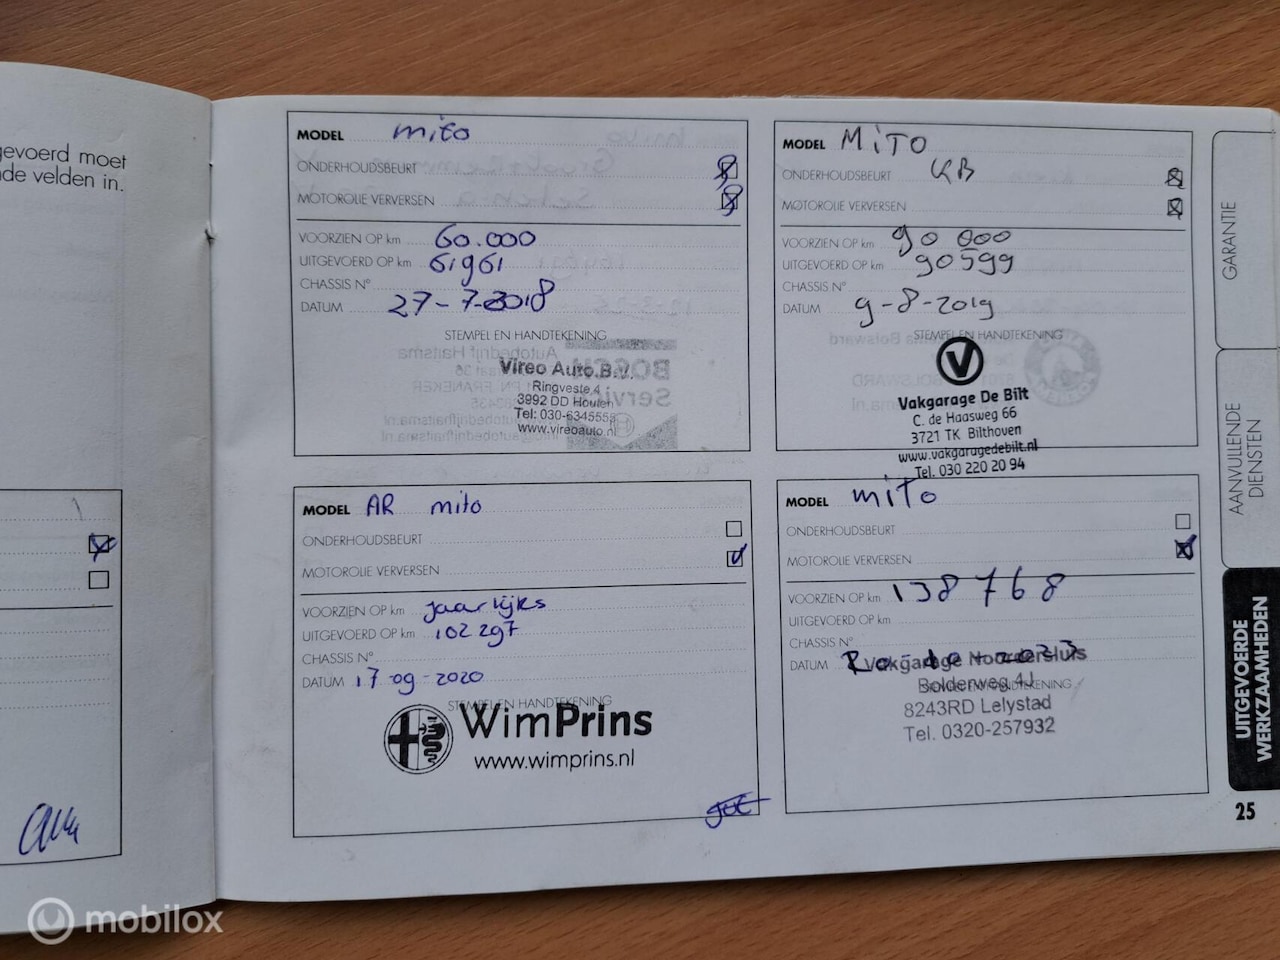 gevoerd moet
nde velden in.
MODEL mito
ONDERHOUDSBEURT
MOTOROLIE VERVERSEN
VOORZIEN OP km 60.000
UITGEVOERD OP km 61961
CHASSIS Nº
DATUM 27-7-2018
STEMPEL EN HANDTEKENING
Vireo Auto B.V.
Ringveste 4
3992 DD Houten
Tel: 030-6345555
www.vireoauto.nl
MODEL MiTO
ONDERHOUDSBEURT KB
MOTOROLIE VERVERSEN
VOORZIEN OP km 90 000
UITGEVOERD OP km 90599
CHASSIS Nº
DATUM 9-8-2019
STEMPEL EN HANDTEKENING
V
Vakgarage De Bilt
C. de Haasweg 66
3721 TK Bilthoven
www.vakgaragedebilt.nl
Tel. 030 220 20 94
MODEL AR mito
ONDERHOUDSBEURT
MOTOROLIE VERVERSEN
VOORZIEN OP km jaarlijks
UITGEVOERD OP km 102297
CHASSIS Nº
DATUM 17-09-2020
STEMPEL EN HANDTEKENING
WimPrins
www.wimprins.nl
MODEL miTo
ONDERHOUDSBEURT
MOTOROLIE VERVERSEN
VOORZIEN OP km 138768
UITGEVOERD OP km
CHASSIS Nº
DATUM
Vakgarage Noordersluis
Bolderweg 4J
8243RD Lelystad
Tel. 0320-257932
GARANTIE
AANVULLENDE
DIENSTEN
UITGEVOERDE
WERKZAAMHEDEN
25
mobilox